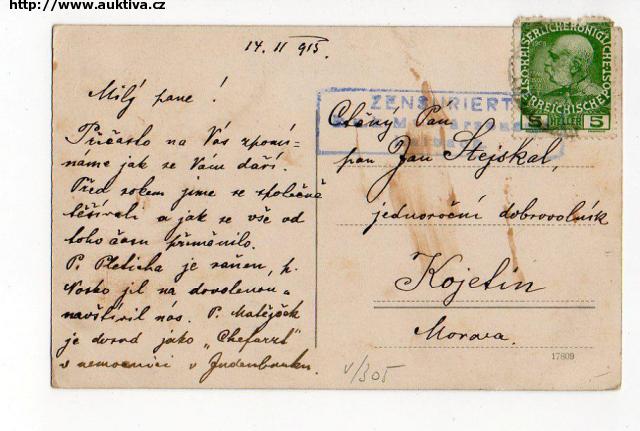 http://www.auktiva.cz
14. II 915.
Milý pane !
Přičasto na Vás vzpomí-
náme jak se Vám daří.
Před rokem jsme se společně
těšívali a jak se vše od
toho času přiměnilo.
P. Pleticha je raněn, p.
Nosko jil na dovolenou -
navštívil nás. P. Matějček
je dosud jako „Chefarzt"
v nemocnici v Judenburku.
ZENSURIERT
Ctěný Pán
pan Jan Stejskal,
jednoroční dobrovolník
Kojetín
Morava.
17809
V/305
5 HELLER 5